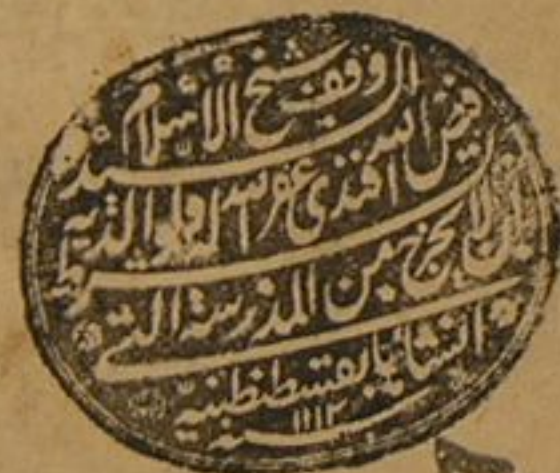 وقف شيخ الإسلام السيد
فيض الله افندى غفر الله له ولوالديه
بشرط ان لا يخرج من المدرسة التي
انشأها بقسطنطينية
سنه ١١١٢